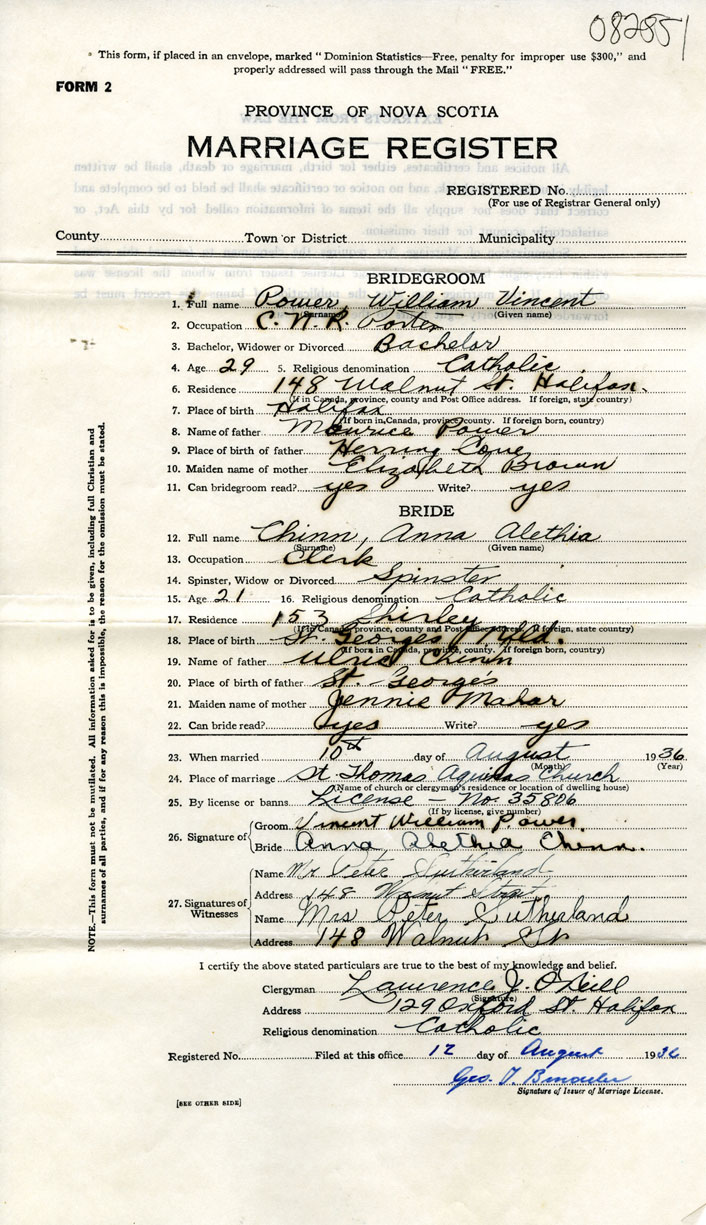 082851
* This form, if placed in an envelope, marked "Dominion Statistics—Free, penalty for improper use $300," and
properly addressed will pass through the Mail "FREE."
FORM 2
PROVINCE OF NOVA SCOTIA
MARRIAGE REGISTER
REGISTERED No.
(For use of Registrar General only)
County Town or District Municipality
BRIDEGROOM
1. Full name Power, William Vincent
(Surname) (Given name)
2. Occupation C.N.R. Porter
3. Bachelor, Widower or Divorced Bachelor
4. Age 29 5. Religious denomination Catholic
6. Residence 148 Walnut St. Halifax.
(If in Canada, province, county and Post Office address. If foreign, state country)
7. Place of birth Halifax
(If born in Canada, province, county. If foreign born, country)
8. Name of father Maurice Power
9. Place of birth of father Herring Cove
10. Maiden name of mother Elizabeth Brown
11. Can bridegroom read? yes Write? yes
BRIDE
12. Full name Chinn, Anna Alethia
(Surname) (Given name)
13. Occupation Clerk
14. Spinster, Widow or Divorced Spinster
15. Age 21 16. Religious denomination Catholic
17. Residence 153 Shirley
(If in Canada, province, county and Post Office address. If foreign, state country)
18. Place of birth St. Georges Nfld.
(If born in Canada, province, county. If foreign born, country)
19. Name of father Ulric Chinn
20. Place of birth of father St. George's
21. Maiden name of mother Jennie Mahar
22. Can bride read? yes Write? yes
23. When married 10th day of August 1936
(Month) (Year)
24. Place of marriage St Thomas Aquinas Church
(Name of church or clergyman's residence or location of dwelling house)
25. By license or banns License — No. 35806
(If by license, give number)
26. Signature of Groom Vincent William Power
Bride Anna Alethia Chinn.
27. Signatures of Witnesses Name Mr Peter Sutherland
Address 148 Walnut Street
Name Mrs Peter Sutherland
Address 148 Walnut St
I certify the above stated particulars are true to the best of my knowledge and belief.
Clergyman Lawrence J. O'Neill
(Signature)
Address 129 Oxford St. Halifax
Religious denomination Catholic
Registered No. Filed at this office 12 day of August 1936
Geo. T.
Signature of Issuer of Marriage License.
[SEE OTHER SIDE]
NOTE.—This form must not be mutilated. All information asked for is to be given, including full Christian and
surnames of all parties, and if for any reason this is impossible, the reason for the omission must be stated.